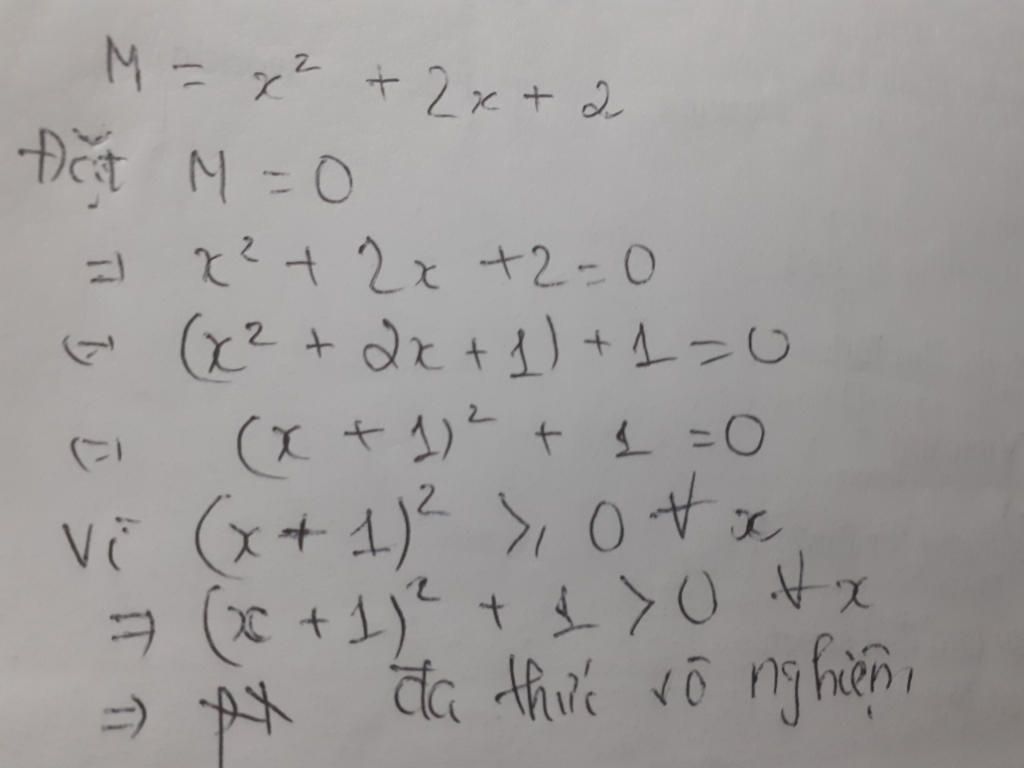 M = x² + 2x + 2
Đặt M = 0
=> x² + 2x + 2 = 0
<=> (x² + 2x + 1) + 1 = 0
<=> (x + 1)² + 1 = 0
Vì (x + 1)² ≥ 0 ∀ x
=> (x + 1)² + 1 > 0 ∀ x
=> đa thức vô nghiệm